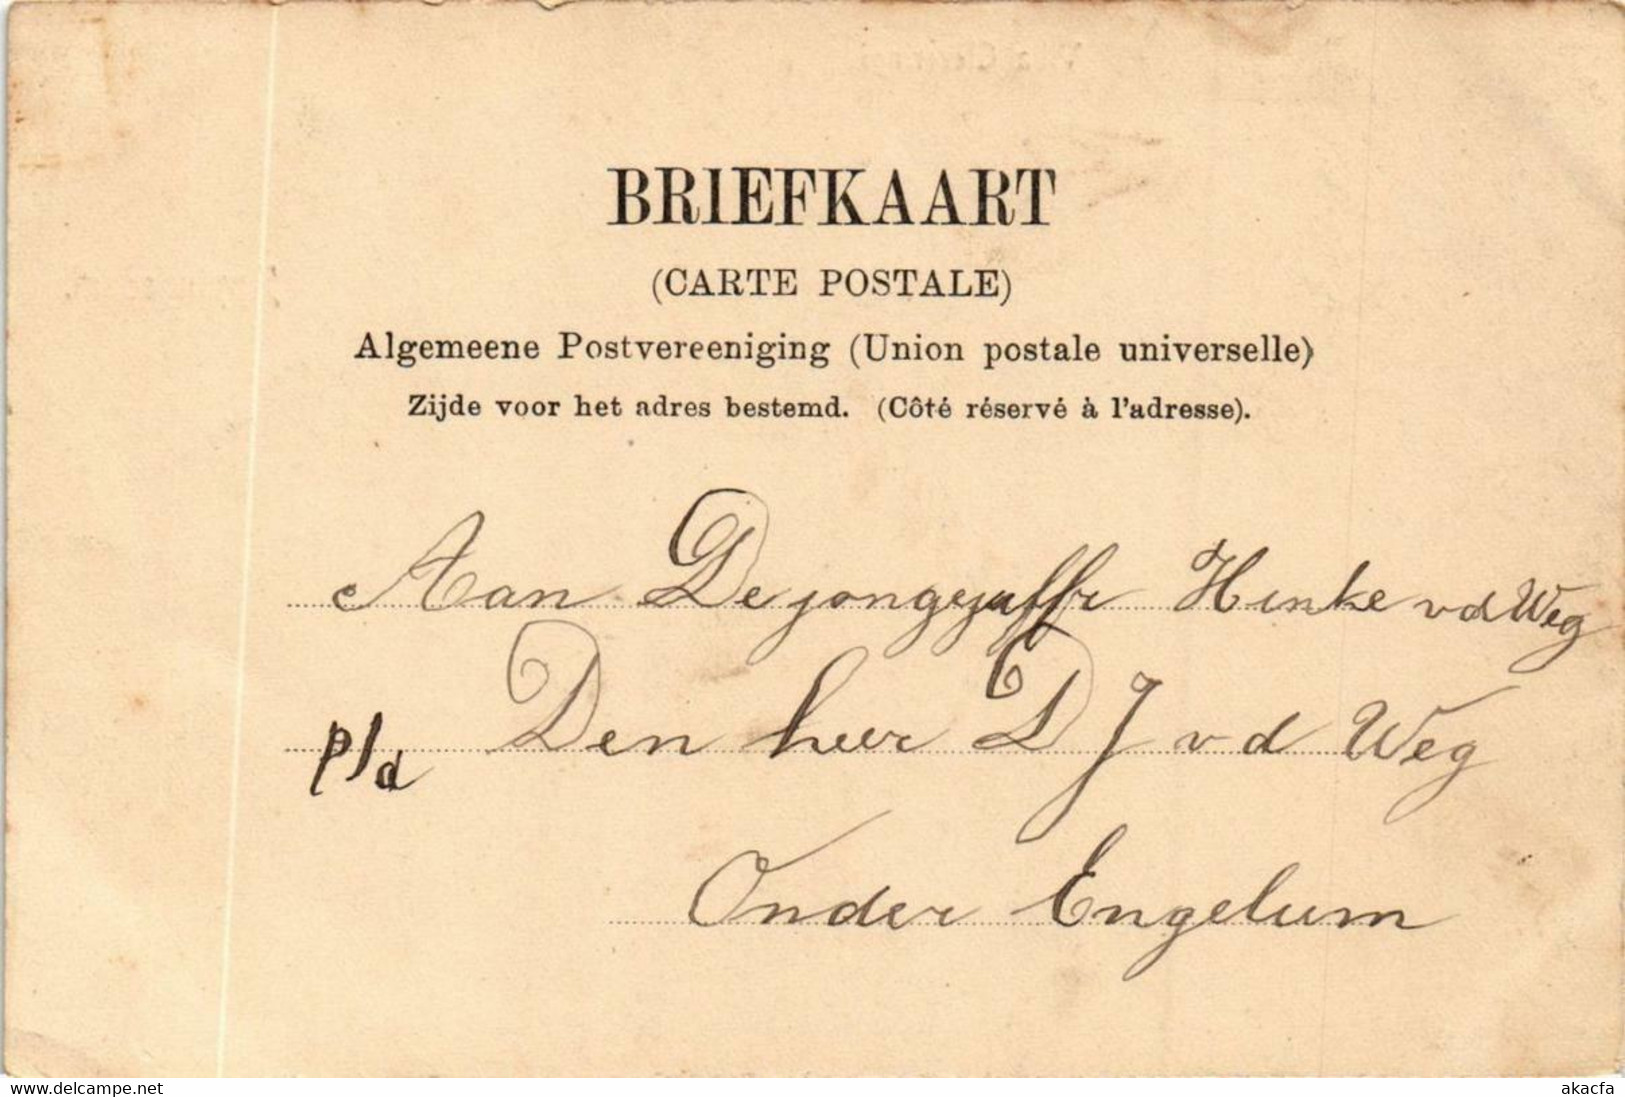 BRIEFKAART
(CARTE POSTALE)
Algemeene Postvereeniging (Union postale universelle)
Zijde voor het adres bestemd. (Côté réservé à l'adresse).
Aan De jongejuffr Hinke vd Weg
p/a Den heer D J v d Weg
Onder Engelum
www.delcampe.net
akacfa